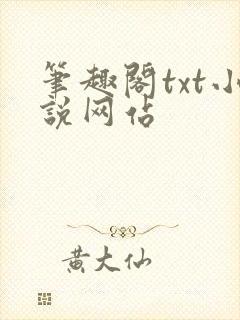 筆趣閣txt小
説网佔
黄大仙